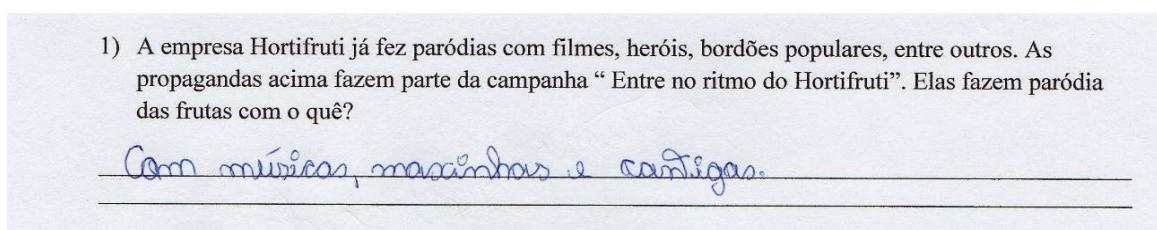 1) A empresa Hortifruti já fez paródias com filmes, heróis, bordões populares, entre outros. As
propagandas acima fazem parte da campanha “ Entre no ritmo do Hortifruti”. Elas fazem paródia
das frutas com o quê?
Com músicas, marcinhas e cantigas.